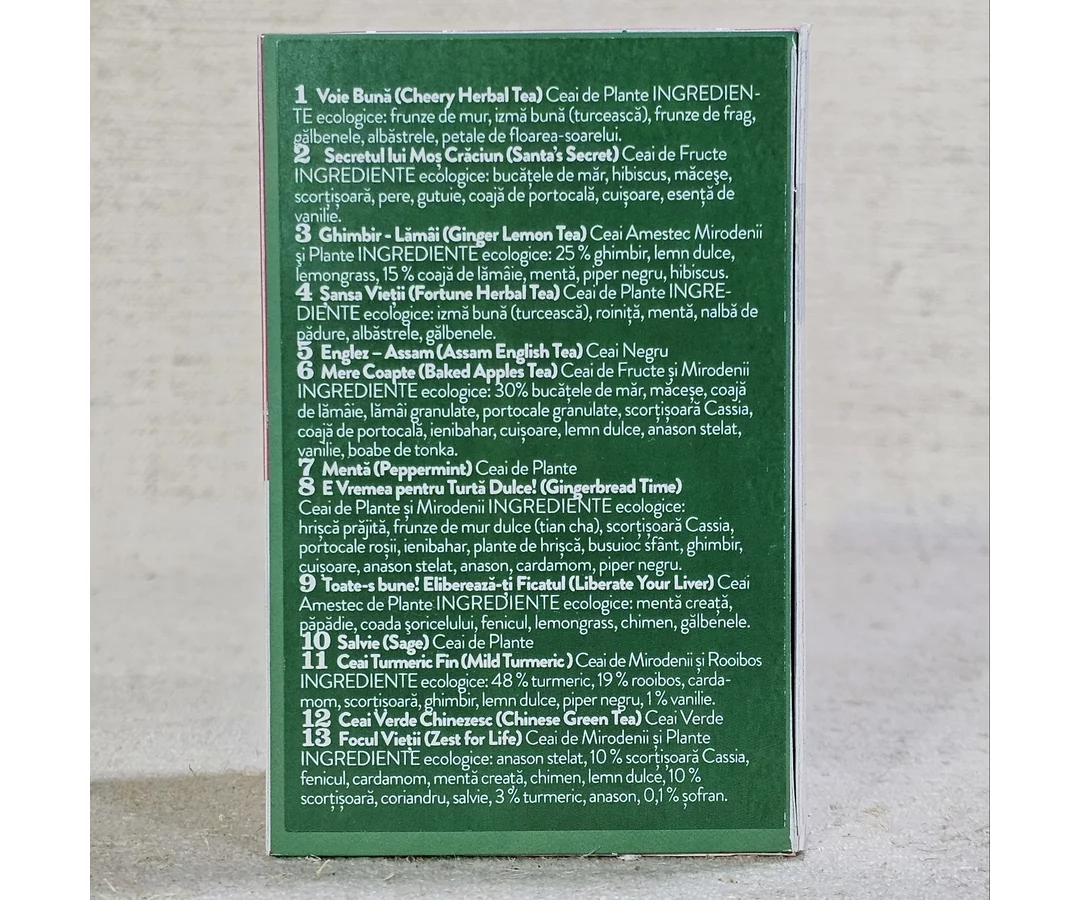 1 Voie Bună (Cheery Herbal Tea) Ceai de Plante INGREDIEN-
TE ecologice: frunze de mur, izmă bună (turcească), frunze de frag,
gălbenele, albăstrele, petale de floarea-soarelui.
2 Secretul lui Moș Crăciun (Santa's Secret) Ceai de Fructe
INGREDIENTE ecologice: bucățele de măr, hibiscus, măceșe,
scorțișoară, pere, gutuie, coajă de portocală, cuișoare, esență de
vanilie.
3 Ghimbir - Lămâi (Ginger Lemon Tea) Ceai Amestec Mirodenii
și Plante INGREDIENTE ecologice: 25 % ghimbir, lemn dulce,
lemongrass, 15 % coajă de lămâie, mentă, piper negru, hibiscus.
4 Șansa Vieții (Fortune Herbal Tea) Ceai de Plante INGRE-
DIENTE ecologice: izmă bună (turcească), roiniță, mentă, nalbă de
pădure, albăstrele, gălbenele.
5 Englez – Assam (Assam English Tea) Ceai Negru
6 Mere Coapte (Baked Apples Tea) Ceai de Fructe și Mirodenii
INGREDIENTE ecologice: 30% bucățele de măr, măceșe, coajă
de lămâie, lămâi granulate, portocale granulate, scorțișoară Cassia,
coajă de portocală, ienibahar, cuișoare, lemn dulce, anason stelat,
vanilie, boabe de tonka.
7 Mentă (Peppermint) Ceai de Plante
8 E Vremea pentru Turtă Dulce! (Gingerbread Time)
Ceai de Plante și Mirodenii INGREDIENTE ecologice:
hrișcă prăjită, frunze de mur dulce (tian cha), scorțișoară Cassia,
portocale roșii, ienibahar, plante de hrișcă, busuioc sfânt, ghimbir,
cuisoare, anason stelat, anason, cardamom, piper negru.
9 Toate-s bune! Eliberează-ți Ficatul (Liberate Your Liver) Ceai
Amestec de Plante INGREDIENTE ecologice: mentă creață,
păpădie, coada șoricelului, fenicul, lemongrass, chimen, gălbenele.
10 Salvie (Sage) Ceai de Plante
11 Ceai Turmeric Fin (Mild Turmeric ) Ceai de Mirodenii și Rooibos
INGREDIENTE ecologice: 48 % turmeric, 19 % rooibos, carda-
mom, scorțișoară, ghimbir, lemn dulce, piper negru, 1 % vanilie.
12 Ceai Verde Chinezesc (Chinese Green Tea) Ceai Verde
13 Focul Vieții (Zest for Life) Ceai de Mirodenii și Plante
INGREDIENTE ecologice: anason stelat, 10 % scorțișoară Cassia,
fenicul, cardamom, mentă creață, chimen, lemn dulce, 10 %
scorțișoară, coriandru, salvie, 3 % turmeric, anason, 0,1 % șofran.